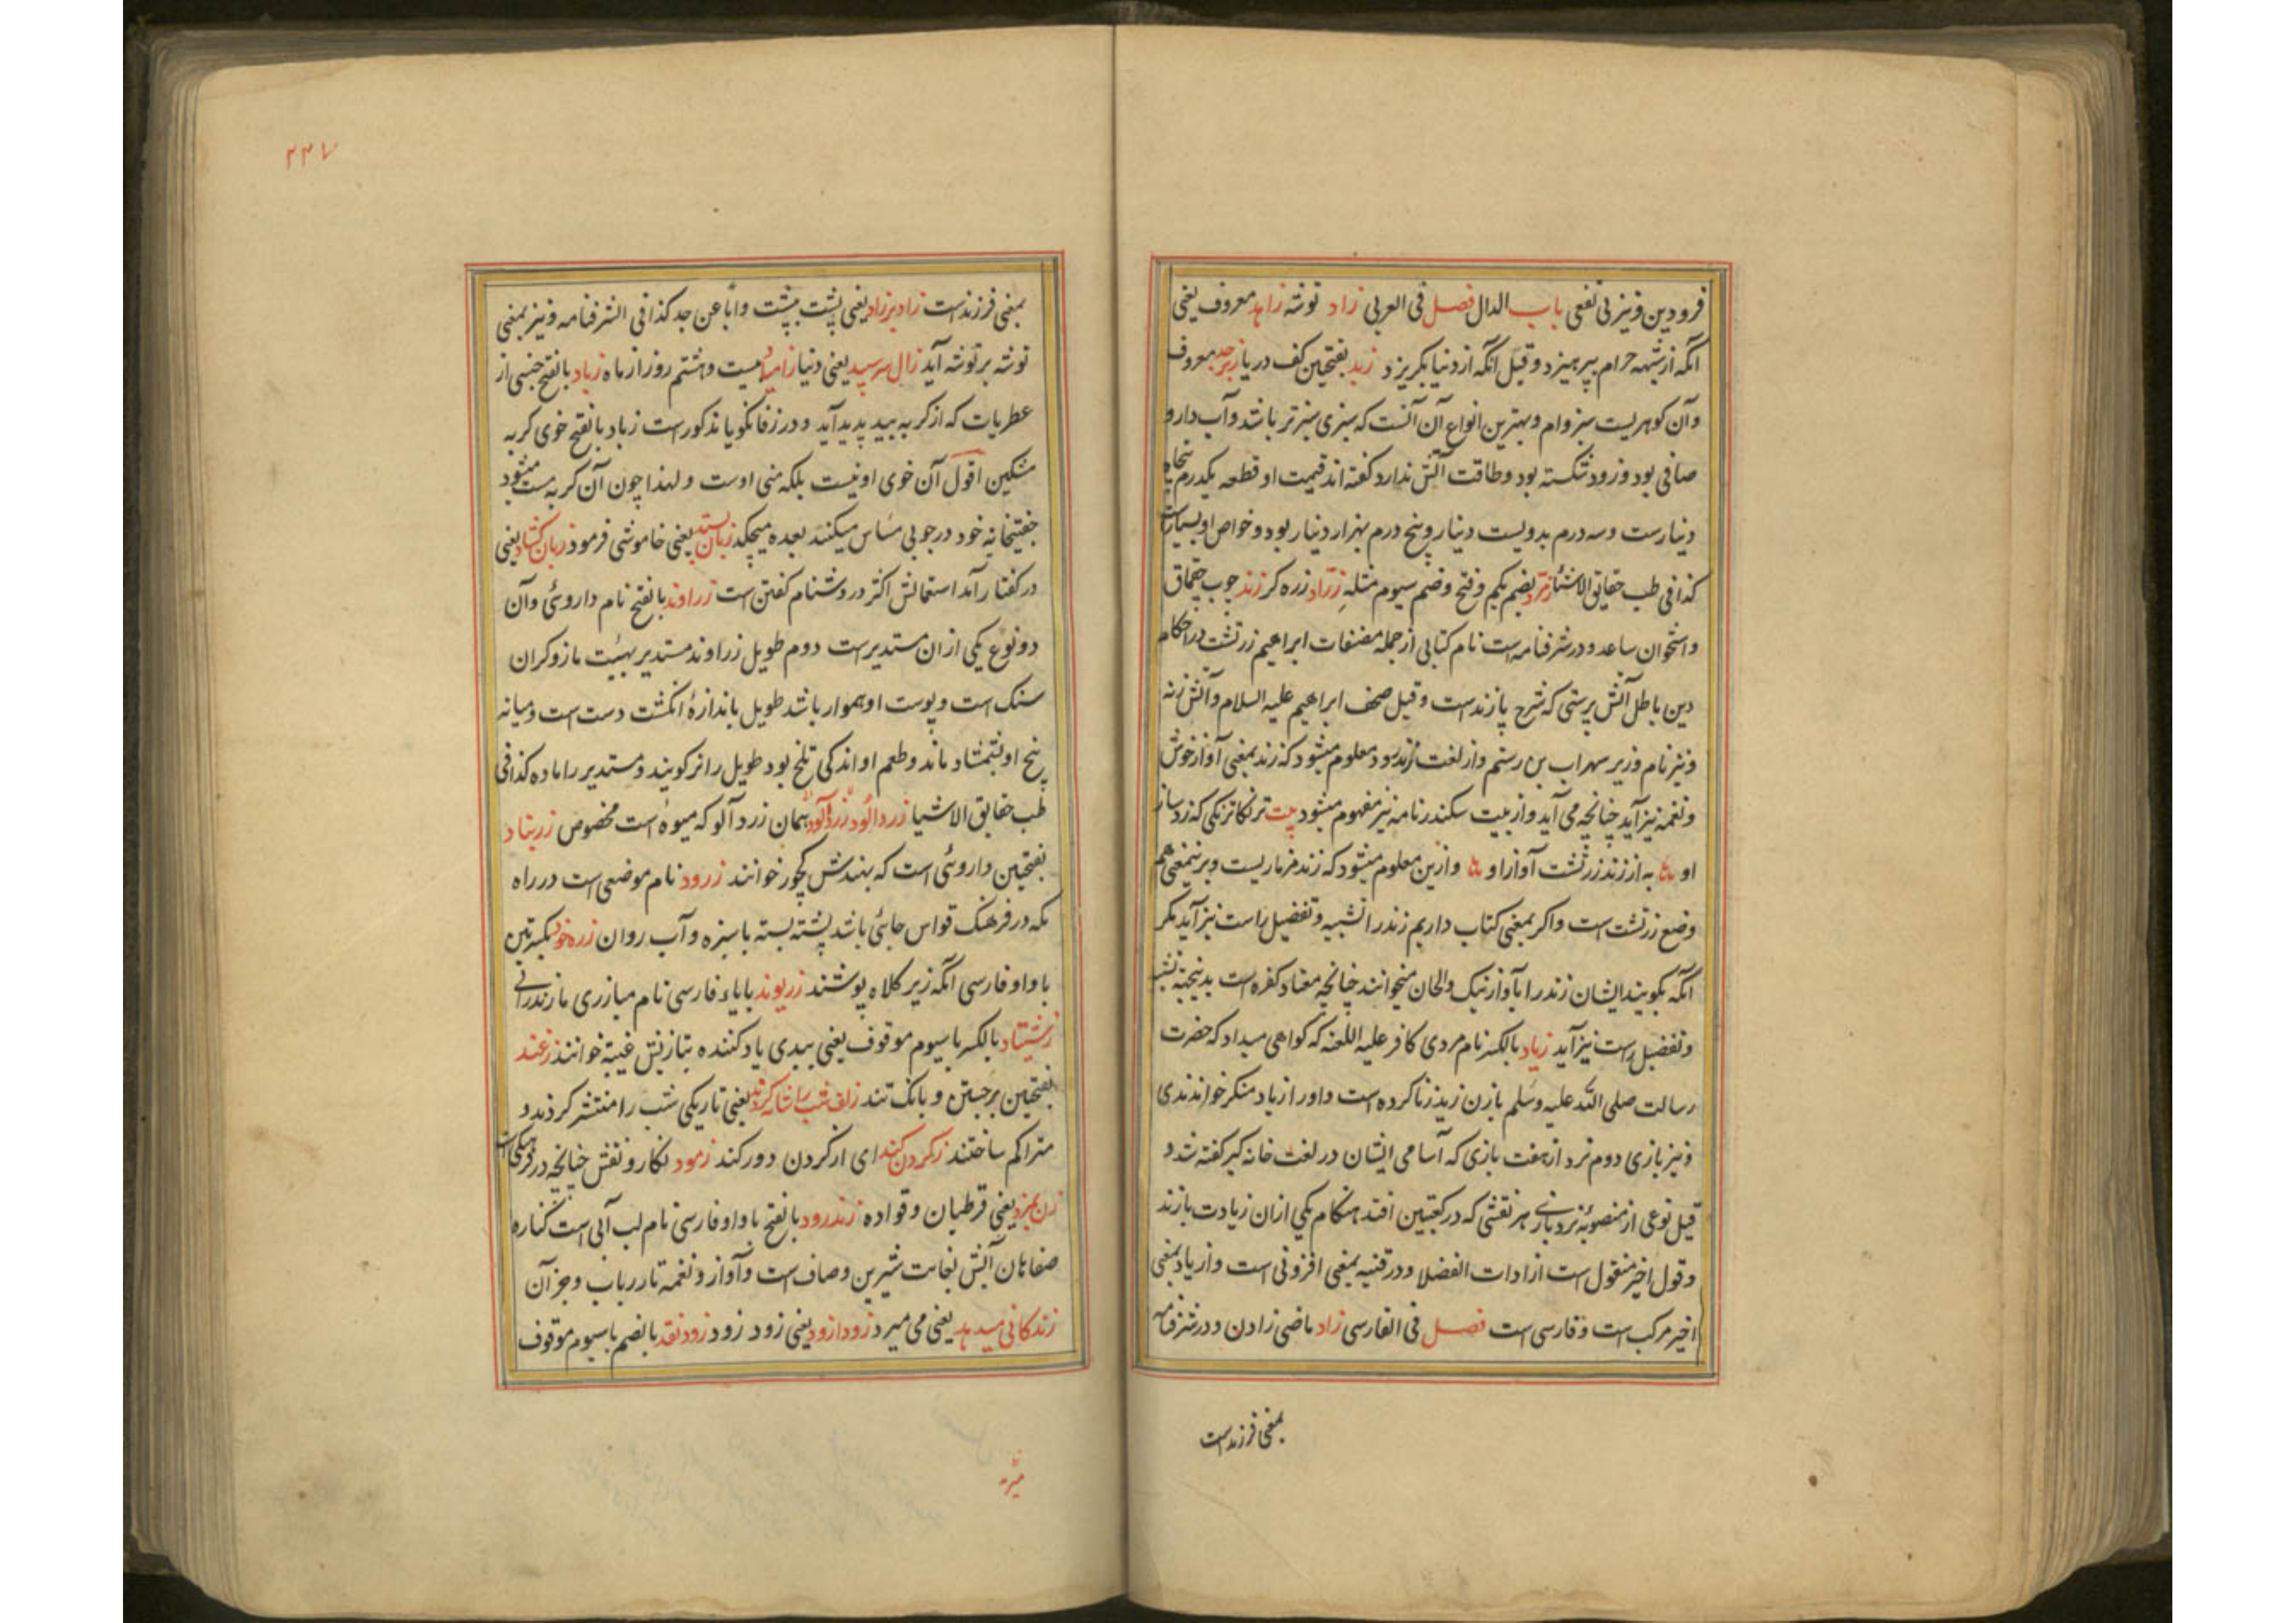 فرودین و نیز بی نفعی باب الدال فصل فی العربی زاد توشه زاهد معروف یعنی
آنکه از شبهه حرام بپرهیزد و قیل آنکه از دنیا بگریزد زبد بفتحتین کف دریا زبرجد معروف
و آن گوهریست سبزوام و بهترین انواع آن آنست که سبزی سبزتر باشد و آب دارو
صافی بود و زود شکسته بود و طاقت آتش ندارد گفته اند قیمت او قطعه یکدرم پنجاه
دینارست و سه درم بدویست دینار و پنج درم بهزار دینار بود و خواص او بسیارست
کذا فی طب حقایق الاشیا زمرد بضم یکم و فتح و ضم سیوم مثله زراد زره کر زند چوب چقماق
و استخوان ساعد و در شرفنامه است نام کتابی از جمله مصنفات ابراهیم زرتشت در احکام
دین باطل آتش پرستی که شرح پازند است و قیل صحف ابراهیم علیه السلام و آتش زنه
و نیز نام وزیر سهراب بن رستم و از لغت زندرود معلوم میشود که زند بمعنی آواز خوش
و نغمه نیز آید چنانچه می آید و از بیت سکندرنامه نیز مفهوم میشود بیت ترنکاترنکی که زد ساز
او به از زند زرتشت آواز او و ازین معلوم میشود که زند مزماریست و برینمعنی هم
وضع زرتشت است و اکر بمعنی کتاب داریم زند را تشبیه و تفضیل راست نیز آید مکر
آنکه بکویند ایشان زند را بآواز نیک و الحان میخوانند چنانچه معتاد کفره است بدینجهة تشبیه
و تفضیل راست نیز آید زیاد بالکسر نام مردی کافر علیه اللعنه که کواهی میداد که حضرت
رسالت صلی الله علیه و سلم با زن زید زنا کرده است و او را زیاد منکر خواندندی
و نیز بازی دوم نرد از هفت بازی که آسامی ایشان در لغت خانه کیر کفته شد و
قیل نوعی از منصوبهٔ نرد بازی هر نقشی که در کعبتین افتد هنکام یکی ازان زیادت بازند
و قول اخیر منقول است از ادات الفضلا و در قنیه بمعنی افزونی است و از یاد بمعنی
اخیر مرکب است و فارسی است فصل فی الفارسی زاد ماضی زادن و در شرفنامه
بمعنی فرزند است
۲۳۷
بمعنی فرزند است زاد بر زاد یعنی پشت به پشت و ابا عن جد کذا فی الشرفنامه و نیز بمعنی
توشه بر توشه آید زال سر سپید یعنی دنیا زامیاد بیست و هشتم روز از ماه زباد بالفتح جنسی از
عطریات که از کربه پدید آید و در زفانکویا مذکور است زباد بالفتح خوی کربه
مشکین اقول آن خوی او نیست بلکه منی اوست و لهذا چون آن کربه مست میشود
خود در چوبی مساس میکند بعده میچکد زبان بستد یعنی خاموشی فرمود زبان کشاد یعنی
در کفتار آمد استعمالش اکثر در دشنام کفتن است زراوند بالفتح نام داروئی و آن
دو نوع یکی ازان مستدیرست دوم طویل زراوند مستدیر بهیئت مازو کران
سنک است و پوست او هموار باشد طویل باندازهٔ انکشت دست است و میانه
بیخ او بشمشاد ماند و طعم او اندکی تلخ بود طویل را نر کویند و مستدیر را ماده کذا فی
طب حقایق الاشیا زردالود زردآلود همان زردآلو که میوه است مخصوص زرنباد
بفتحتین داروئی است که بهندش کچور خوانند زرود نام موضعی است در راه
مکه در فرهنک قواس جائی باشد پشته بسته با سبزه و آب روان زره خود بکسرتین
با واو فارسی آنکه زیر کلاه پوشند زریوند با یاء فارسی نام مبارزی مازندرانی
زشتیاد بالکسر با سیوم موقوف یعنی ببدی یاد کننده بتازیش غیبة خوانند زغند
بفتحتین برجستن و بانک تند زلف شب را شانه کردند یعنی تاریکی شب را منتشر کردند و
متراکم ساختند ز کردن کند ای از کردن دور کند زمود نکار و نقش چنانچه در
زن بمزد یعنی قرطبان و قواده زندرود بالفتح با واو فارسی نام لب آبی است کناره
صفاهان آبش بغایت شیرین و صاف است و آواز و نغمه تار رباب و جز آن
زندکانی میدهد یعنی می میرد زودازود یعنی زود زود زودنقد بالضم با سیوم موقوف